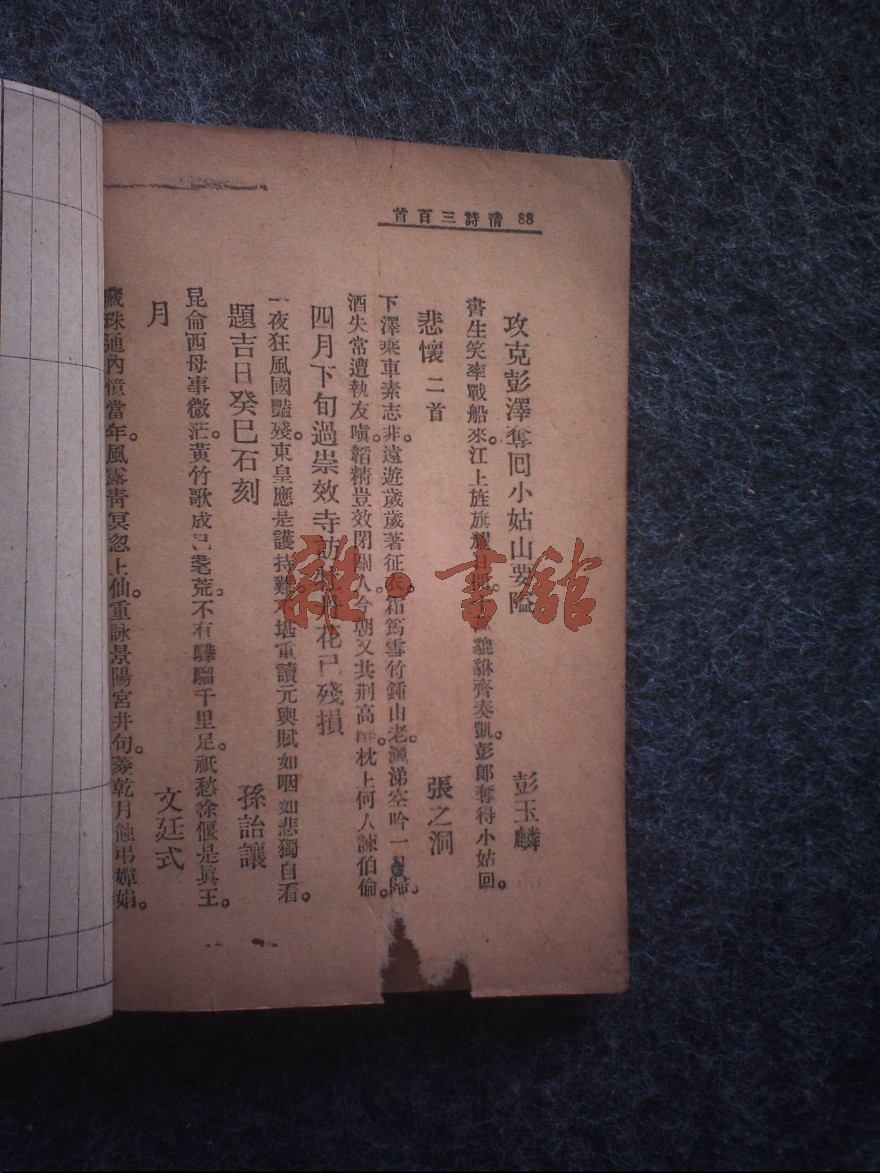 清詩三百首 88
攻克彭澤奪回小姑山要隘 彭玉麟
書生笑率戰船來。江上旌旗耀日 貔貅齊奏凱。彭郎奪得小姑回。
悲懷二首 張之洞
下澤乘車素志非。遠遊歲歲著征衣。霜筠雪竹鍾山老。灑涕空吟一 歸。
酒失常遭執友嗔。韜精豈效閉關人。今朝又共荆高 枕上何人諫伯倫。
四月下旬過崇效寺訪牡丹花已殘損
一夜狂風國豔殘。東皇應是護持難。不堪重讀元輿賦。如咽如悲獨自看。
題吉日癸巳石刻 孫詒讓
昆侖西母事微茫。黃竹歌成已耄荒。不有驊騮千里足。祇愁徐偃是真王。
月 文廷式
藏珠通內憶當年。風露青冥忽上仙。重詠景陽宮井句。菱乾月蝕弔嬋娟。
雜·書館